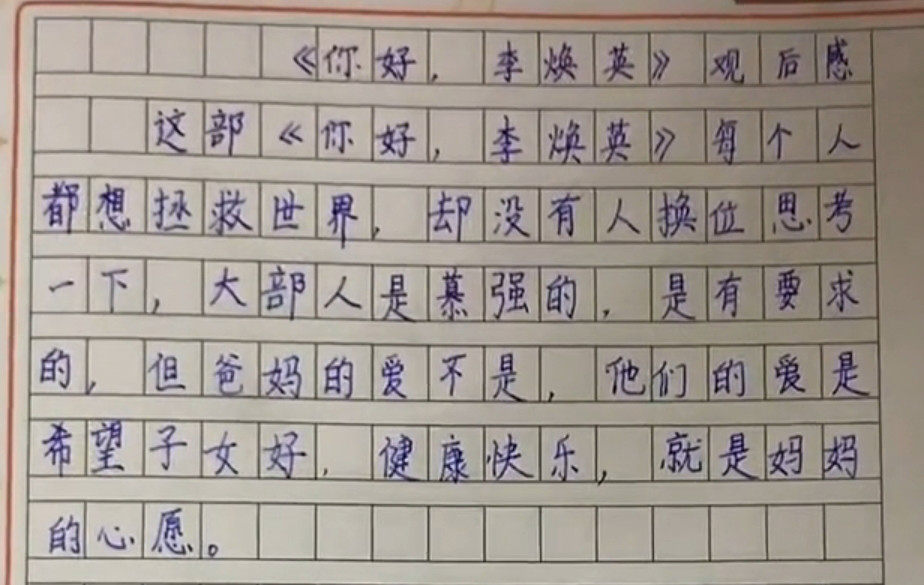 《你好，李焕英》观后感
这部《你好，李焕英》每个人
都想拯救世界，却没有人换位思考
一下，大部人是慕强的，是有要求
的，但爸妈的爱不是，他们的爱是
希望子女好，健康快乐，就是妈妈
的心愿。